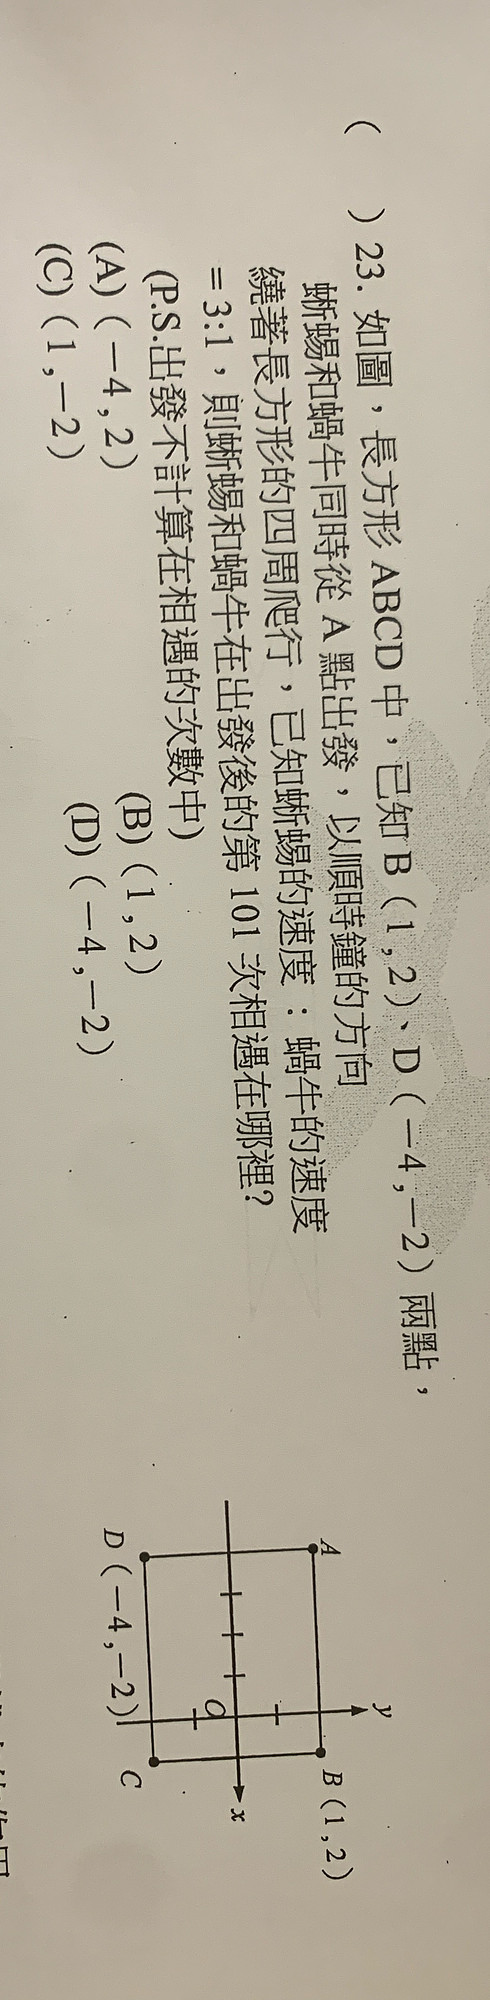 (　　) 23. 如圖，長方形 ABCD 中，已知 B（1,2）、D（－4,－2）兩點，
蜥蜴和蝸牛同時從 A 點出發，以順時鐘的方向
繞著長方形的四周爬行，已知蜥蜴的速度：蝸牛的速度
＝3:1，則蜥蜴和蝸牛在出發後的第 101 次相遇在哪裡?
(P.S.出發不計算在相遇的次數中)
(A)（－4,2）　(B)（1,2）
(C)（1,－2）　(D)（－4,－2）
y
A　B（1,2）
O　x
D（－4,－2）　C